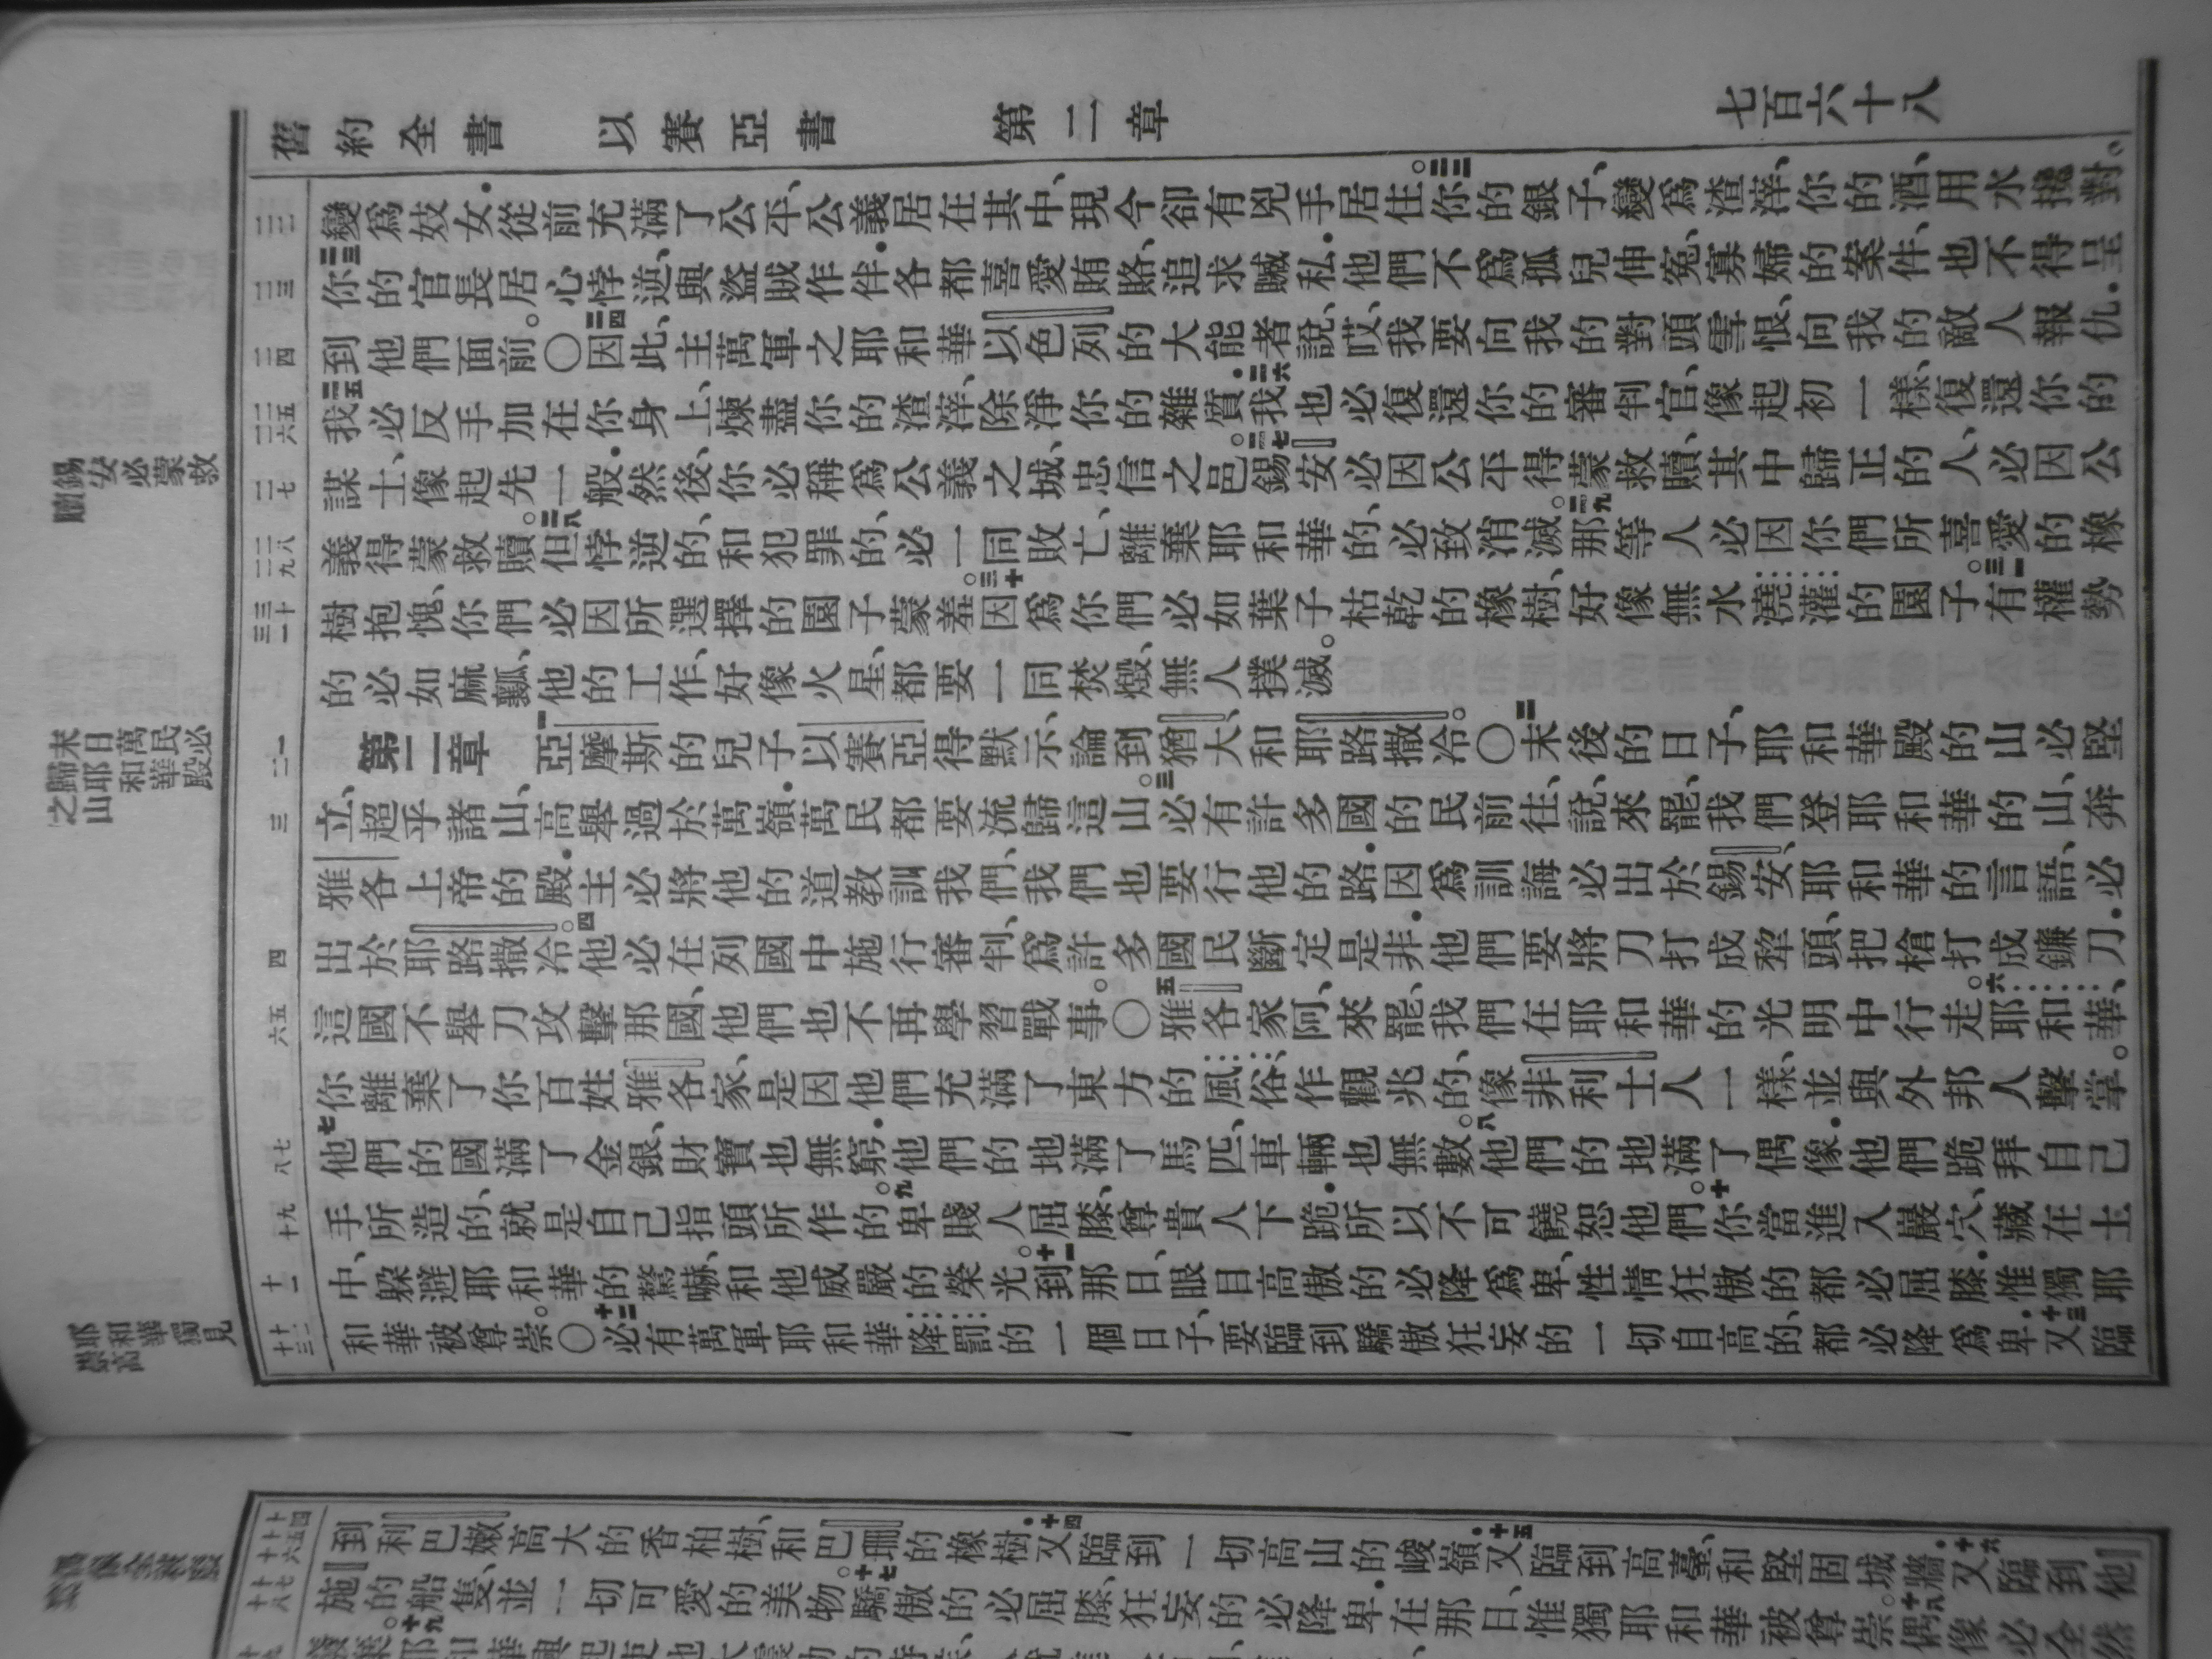 舊約全書 以賽亞書 第二章 七百六十八
變爲妓女•從前充滿了公平、公義居在其中、現今卻有兇手居住。二二你的銀子、變爲渣滓、你的酒、用水攙對。
二三你的官長居心悖逆、與盜賊作伴•各都喜愛賄賂、追求贓私•他們不爲孤兒伸冤、寡婦的案件、也不得呈
到他們面前。〇二四因此、主萬軍之耶和華以色列的大能者說、哎、我要向我的對頭雪恨、向我的敵人報仇•
二五我必反手加在你身上、煉盡你的渣滓、除淨你的雜質•二六我也必復還你的審判官、像起初一樣、復還你的
謀士、像起先一般•然後、你必稱爲公義之城、忠信之邑。二七錫安必因公平得蒙救贖、其中歸正的人、必因公
義得蒙救贖。二八但悖逆的、和犯罪的、必一同敗亡、離棄耶和華的、必致消滅。二九那等人必因你們所喜愛的橡
樹抱愧、你們必因所選擇的園子蒙羞。三十因爲你們必如葉子枯乾的橡樹、好像無水澆灌的園子。三一有權勢
的必如麻瓤、他的工作、好像火星、都要一同焚燬、無人撲滅。
第二章 一亞摩斯的兒子以賽亞得默示、論到猶大、和耶路撒冷。〇二末後的日子、耶和華殿的山必堅
立、超乎諸山、高舉過於萬嶺•萬民都要流歸這山。三必有許多國的民前往、說、來罷、我們登耶和華的山、奔
雅各上帝的殿•主必將他的道教訓我們、我們也要行他的路•因爲訓誨必出於錫安、耶和華的言語、必
出於耶路撒冷。四他必在列國中施行審判、爲許多國民斷定是非•他們要將刀打成犂頭、把槍打成鐮刀•
這國不舉刀攻擊那國、他們也不再學習戰事。〇五雅各家阿、來罷、我們在耶和華的光明中行走。六耶和華、
你離棄了你百姓雅各家、是因他們充滿了東方的風俗、作觀兆的、像非利士人一樣、並與外邦人擊掌。
七他們的國滿了金銀、財寶也無窮•他們的地滿了馬匹、車輛也無數。八他們的地滿了偶像•他們跪拜自己
手所造的、就是自己指頭所作的。九卑賤人屈膝、尊貴人下跪•所以不可饒恕他們。十你當進入巖穴、藏在土
中、躲避耶和華的驚嚇、和他威嚴的榮光。十一到那日、眼目高傲的必降爲卑、性情狂傲的都必屈膝•惟獨耶
和華被尊崇。〇十二必有萬軍耶和華降罰的一個日子、要臨到驕傲狂妄的•一切自高的、都必降爲卑•十三又臨
二二
二三
二四
二五 二六
二七
二八 二九
三十 三一
一 二
三
四
五 六
七 八
九 十
十一
十二 十三
錫安必蒙救贖
末日萬民必歸耶和華殿之山
耶和華獨見崇高
到利巴嫩高大的香柏樹、和巴珊的橡樹•十四又臨到一切高山的峻嶺•十五又臨到高臺、和堅固城牆•十六又臨到他
施的船隻、並一切可愛的美物。十七驕傲的必屈膝、狂妄的必降卑•在那日、惟獨耶和華被尊崇。十八偶像必全然